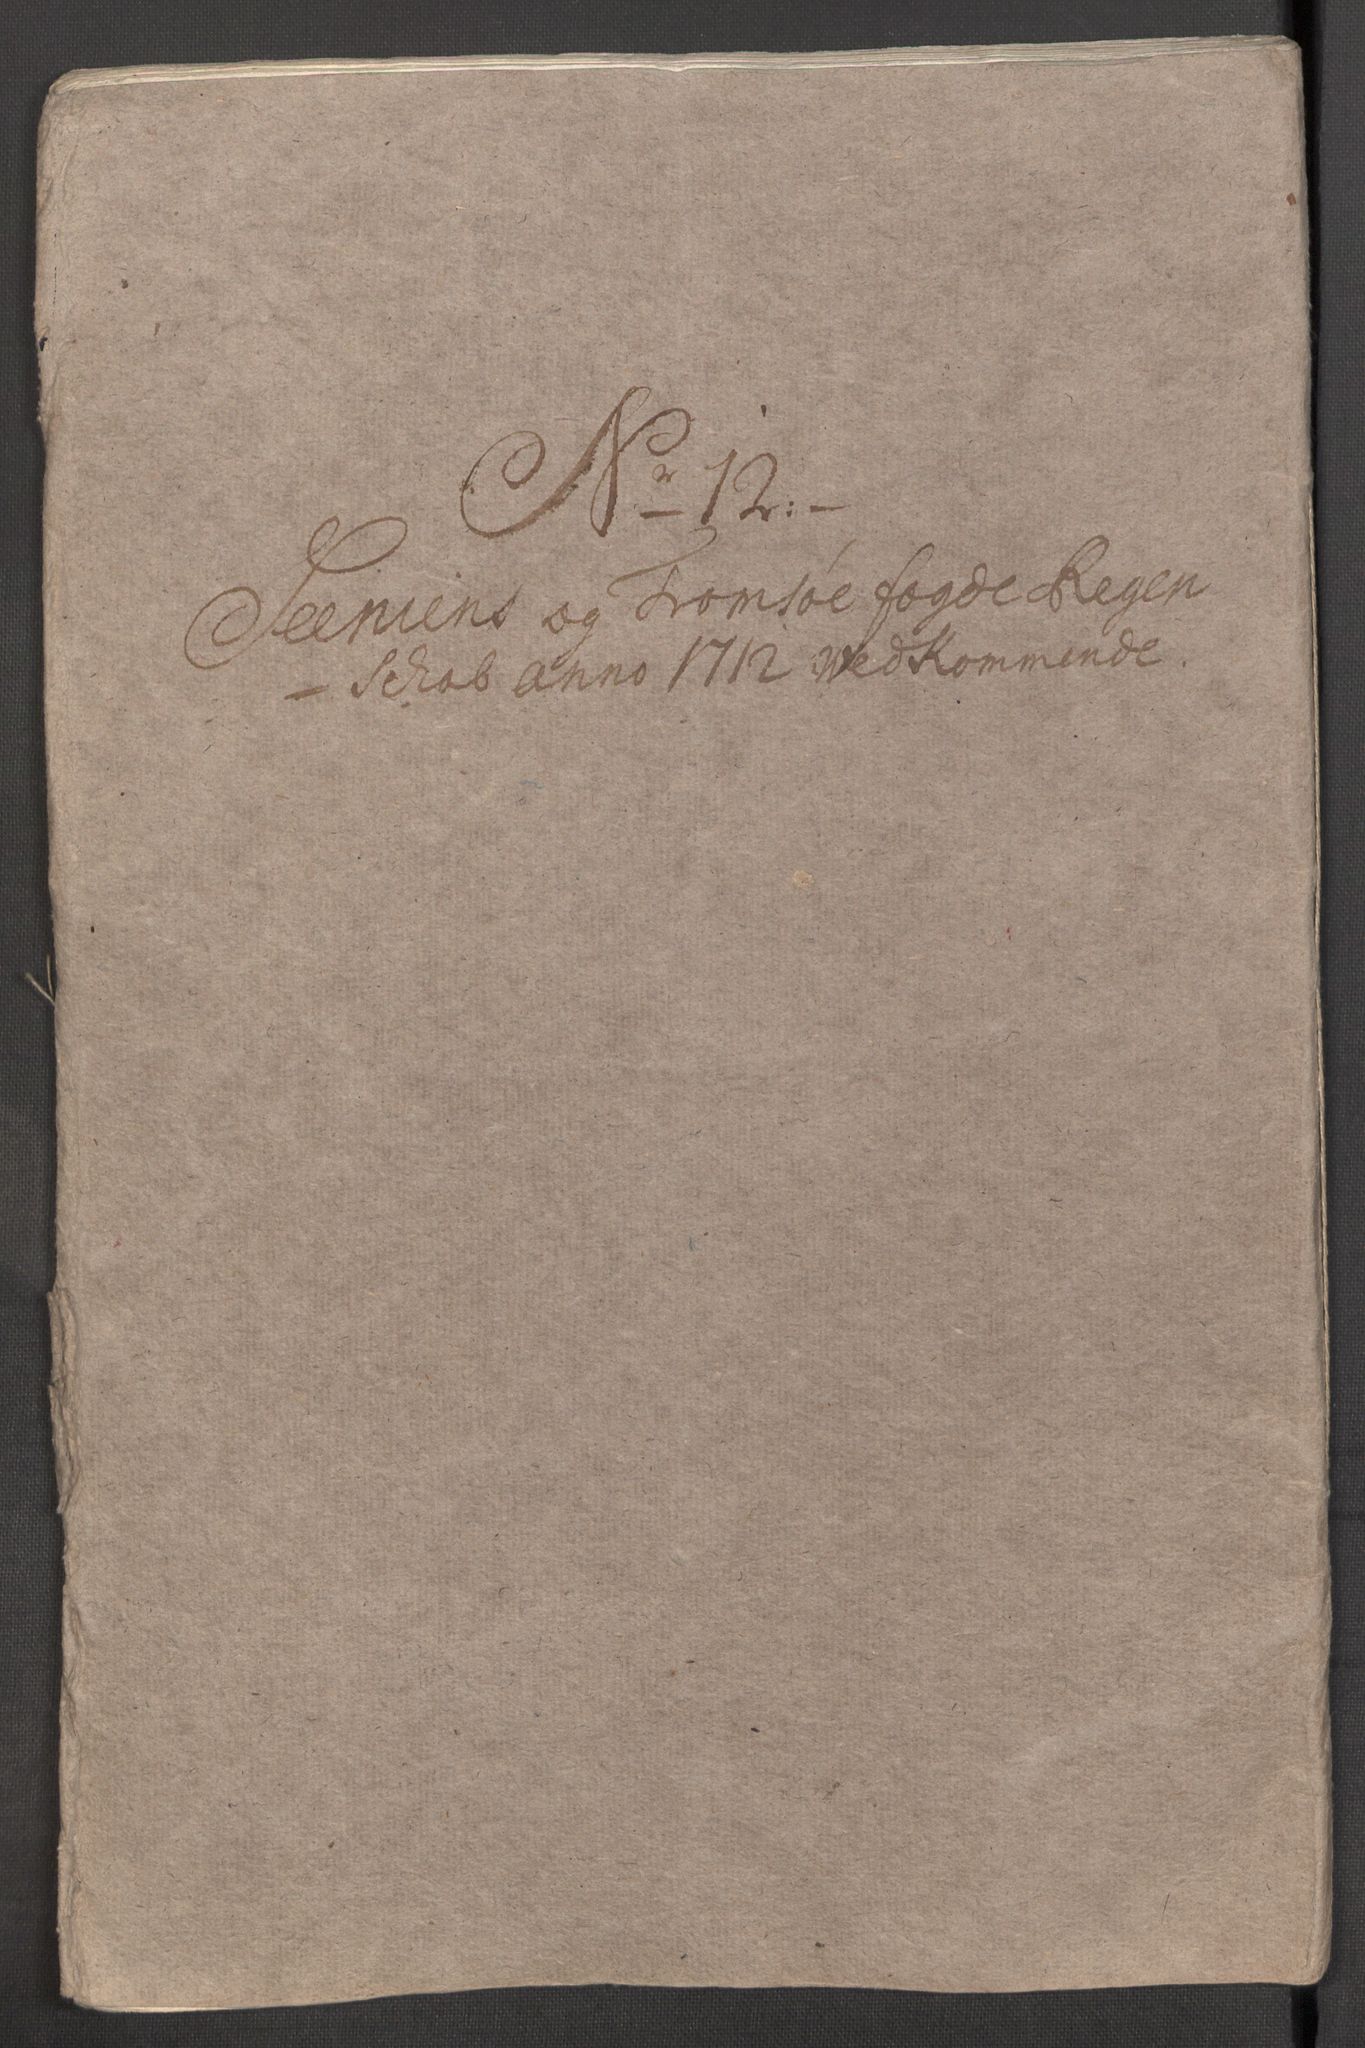 Nr 12:-
Seeniens og Tromsøe fogde Regen
- Schab anno 1712 Vedkommende.